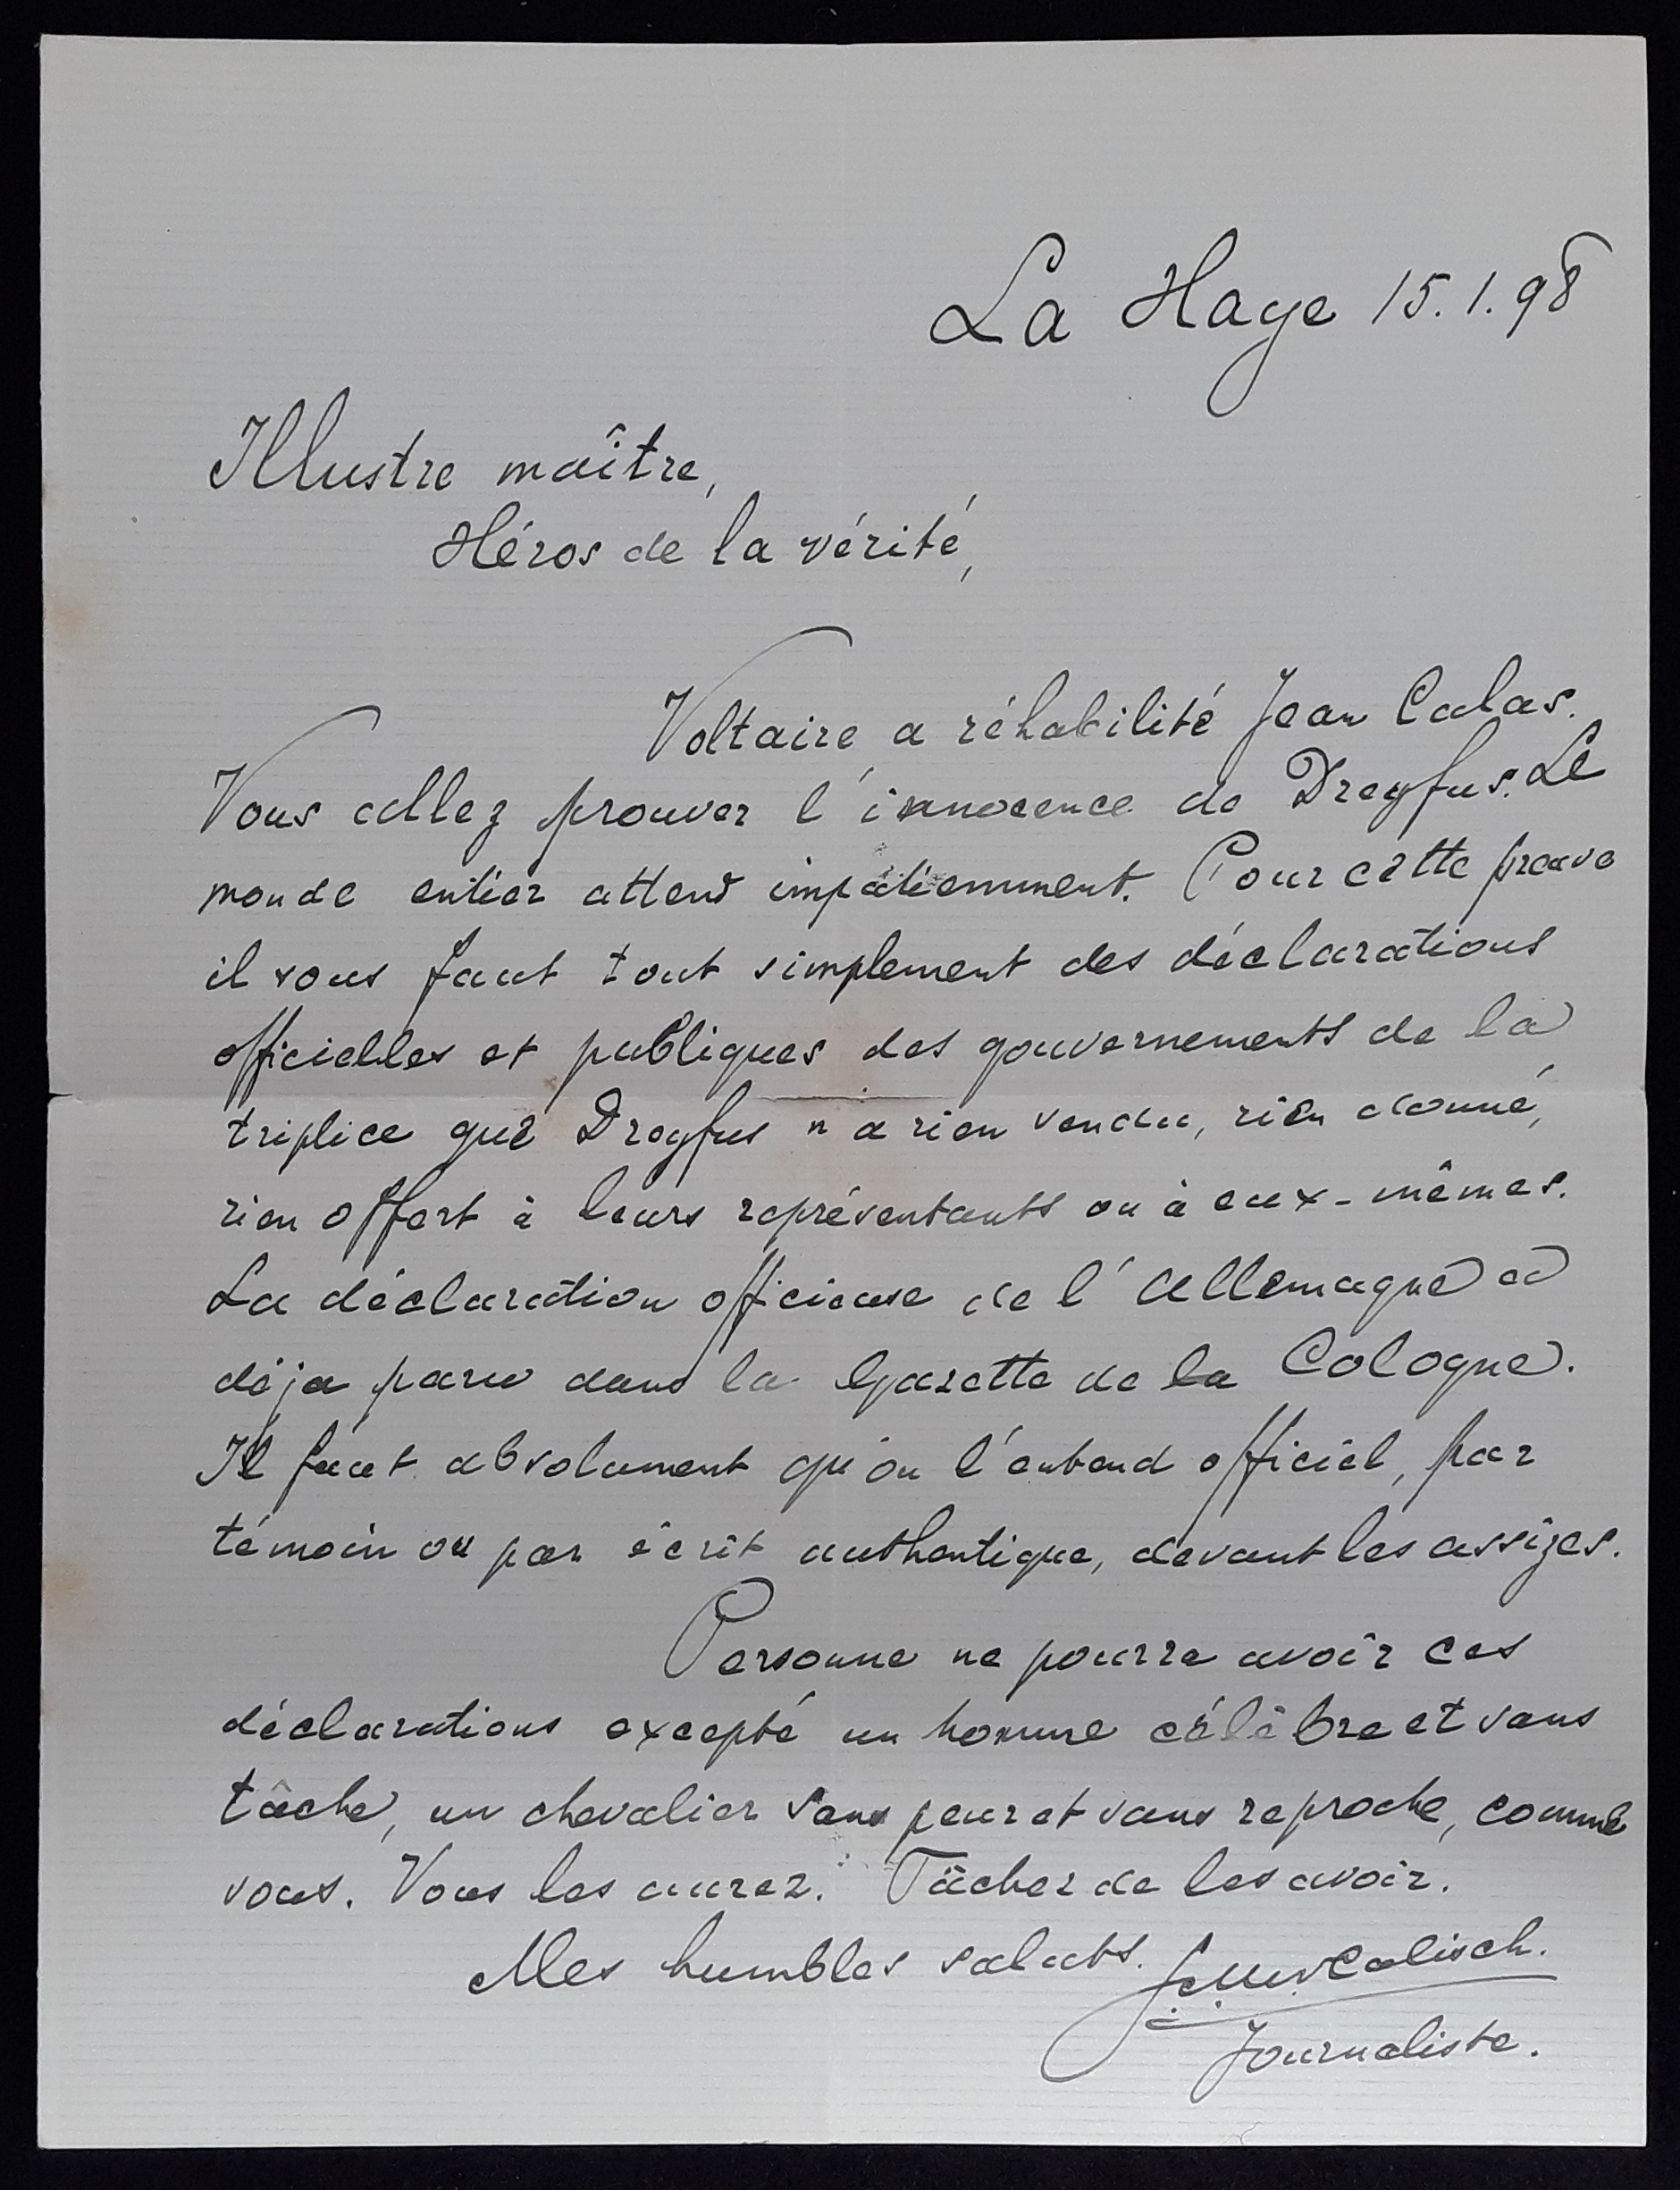 La Haye 15.1.98
Illustre maître,
Héros de la vérité,
Voltaire a réhabilité Jean Calas.
Vous allez prouver l'innocence de Dreyfus. Le
monde entier attend impatiemment. Pour cette preuve
il vous faut tout simplement des déclarations
officielles et publiques des gouvernements de la
triplice que Dreyfus n'a rien vendu, rien donné,
rien offert à leurs représentants ou à eux-mêmes.
La déclaration officieuse de l'Allemagne a
déja paru dans la Gazette de la Cologne.
Il faut absolument qu'on l'entend officiel, par
témoin ou par écrit authentique, devant les assizes.
Personne ne pourra avoir ces
déclarations excepté un homme célèbre et sans
tâche, un chevalier sans peur et sans reproche, comme
vous. Vous les aurez. Tâchez de les avoir.
Mes humbles saluts. Calisch.
Journaliste.